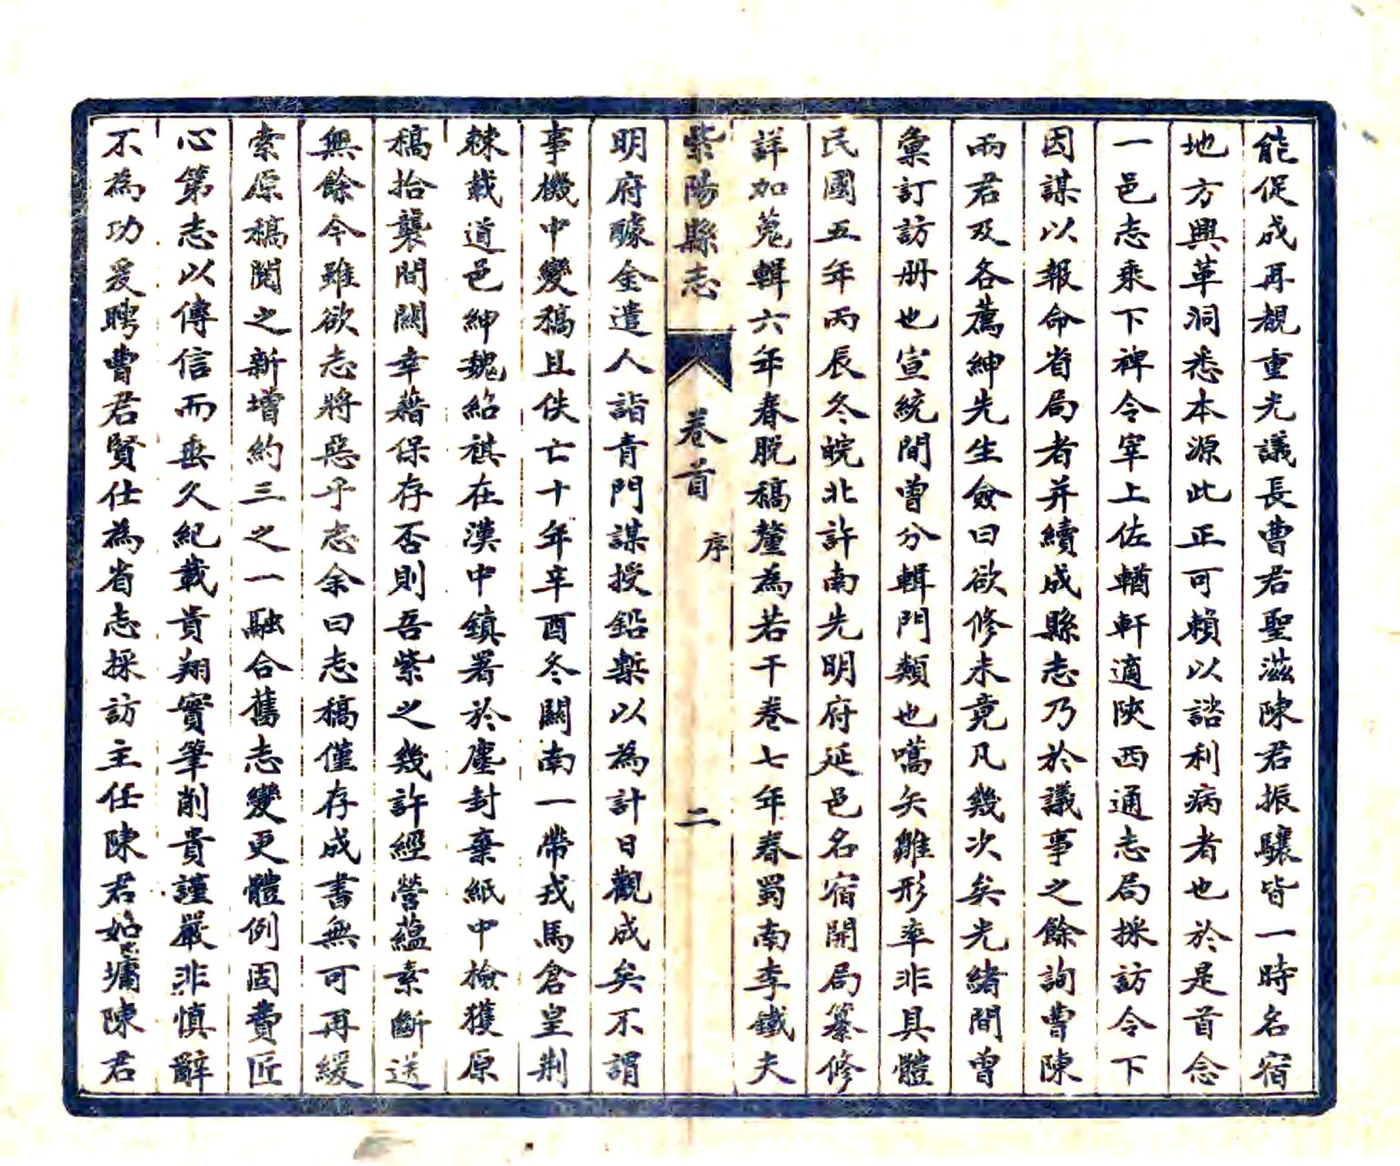 能促成再覩重光議長曹君聖滋陳君振驤皆一時名宿
地方興革洞悉本源此正可賴以諮利病者也於是首念
一邑志乘下裨令宰上佐輶軒適陝西通志局採訪令下
因謀以報命省局者并續成縣志乃於議事之餘詢曹陳
兩君及各薦紳先生僉曰欲修未竟凡幾次矣光緒間曾
彙訂訪册也宣統間曾分輯門類也噶矢雛形率非具體
民國五年丙辰冬皖北許南先明府延邑名宿開局纂修
詳加蒐輯六年春脫稿釐為若干卷七年春蜀南李鐵夫
紫陽縣志
卷首
序
二
明府醵金遣人詣青門謀授鉛槧以為計日觀成矣不謂
事機中變稿且佚亡十年辛酉冬關南一帶戎馬倉皇荆
棘載道邑紳魏紹祺在漢中鎮署於塵封棄紙中檢獲原
稿拾襲間關幸藉保存否則吾紫之幾許經營蘊素斷送
無餘今雖欲志將惡乎志余曰志稿僅存成書無可再緩
索原稿閱之新增約三之一融合舊志變更體例固費匠
心第志以傳信而垂久紀載貴翔實筆削貴謹嚴非慎辭
不為功爰聘曹君賢仕為省志採訪主任陳君如墉陳君